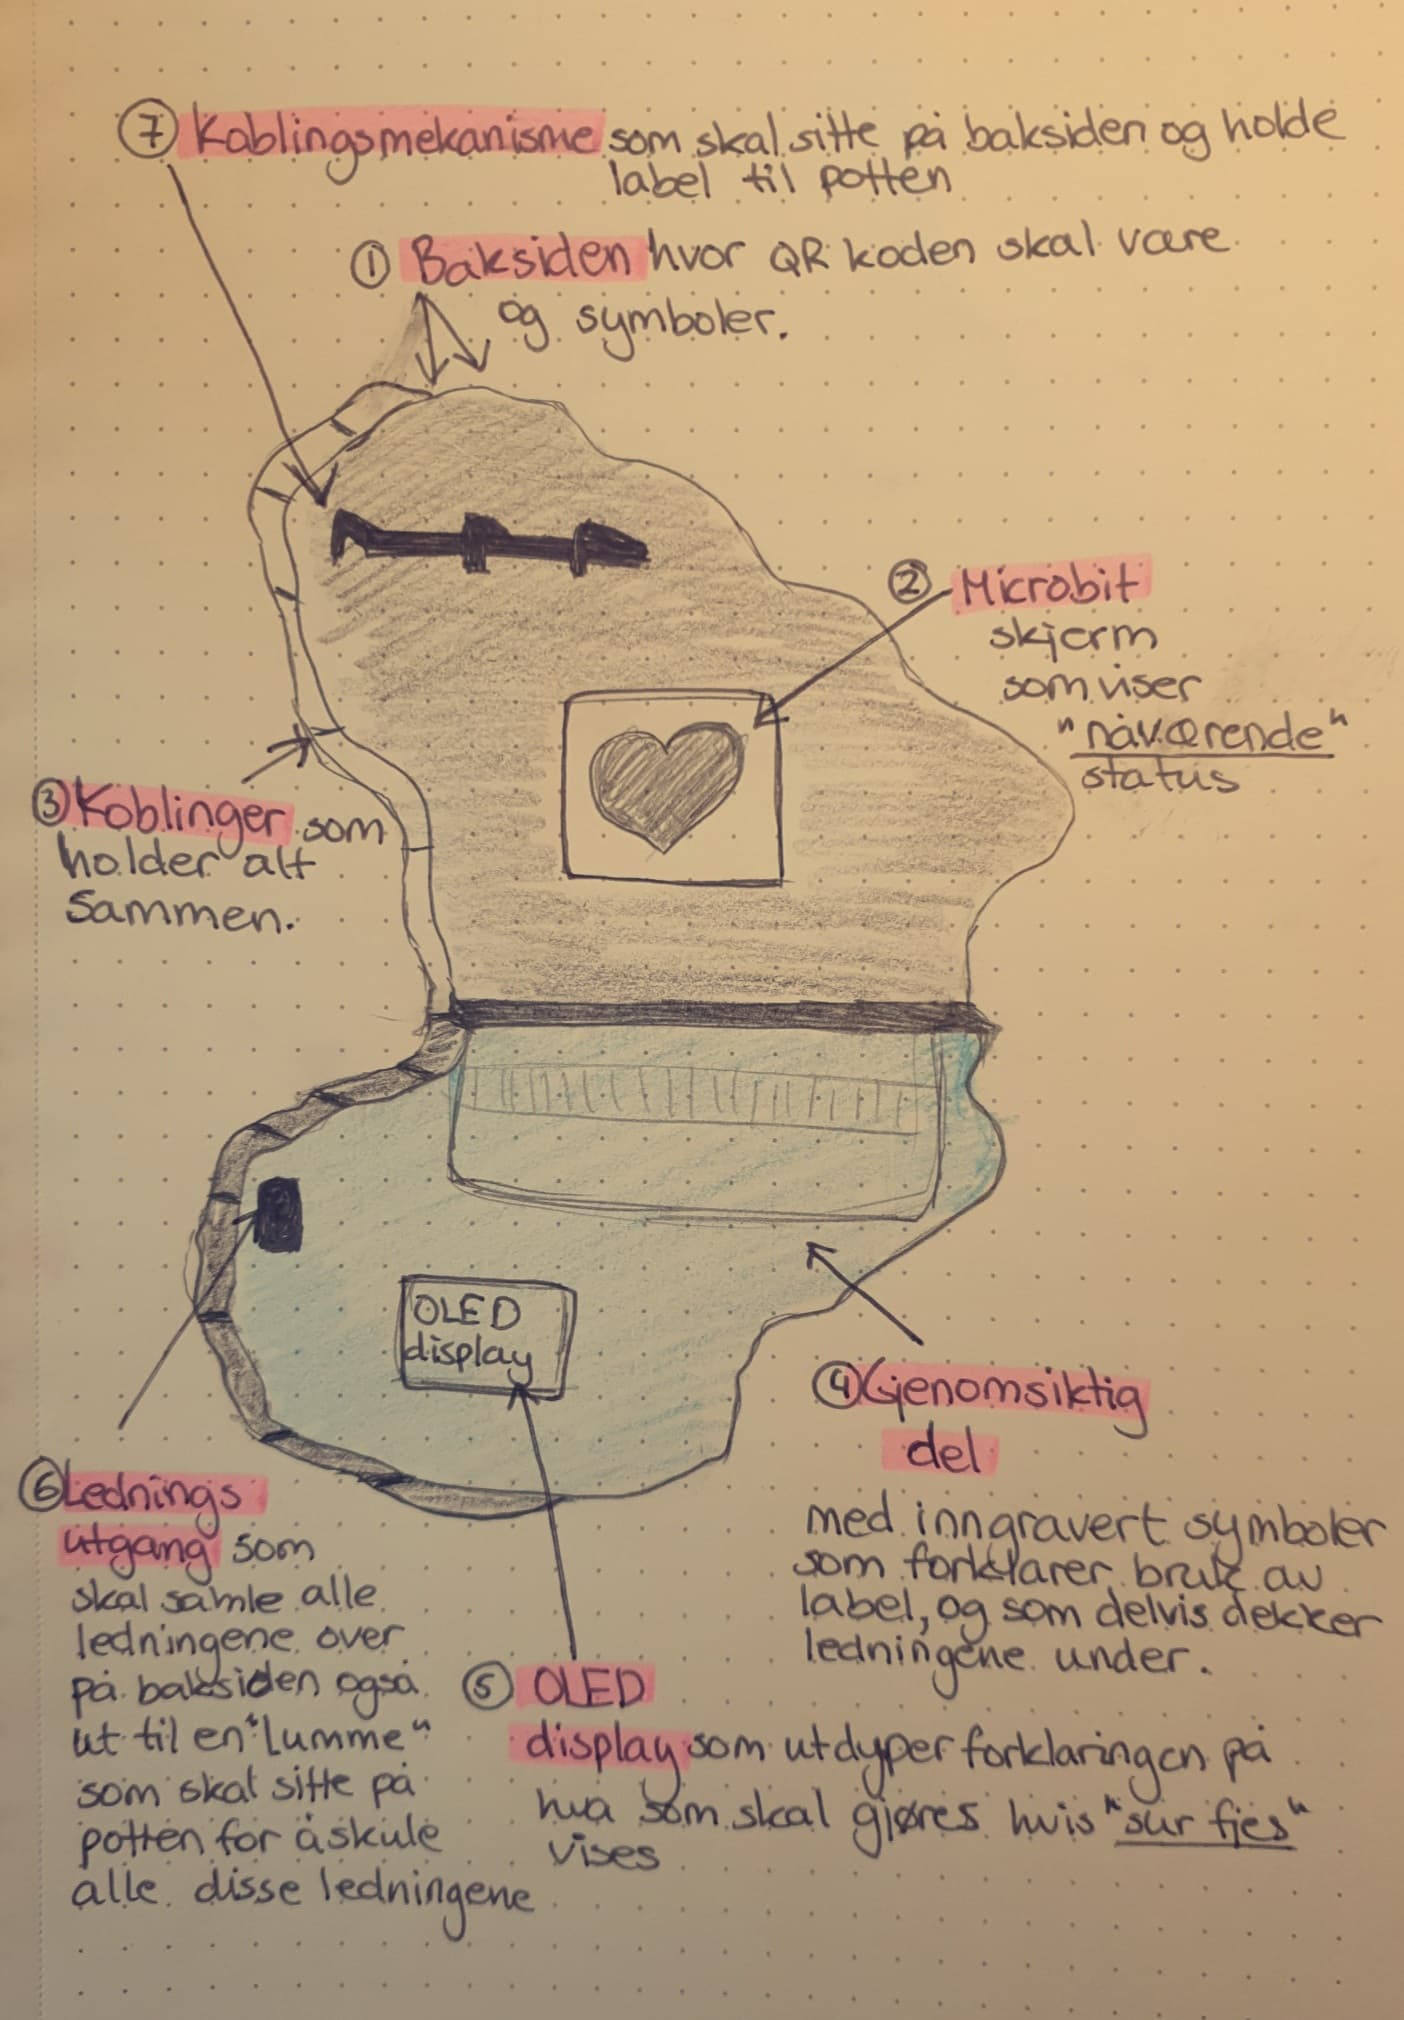 7 Koblingsmekanisme som skal sitte på baksiden og holde
label til potten
1 Baksiden hvor QR koden skal være
og symboler.
2 Microbit
skjerm
som viser
"nåværende"
status
3 Koblinger som
holder alt
sammen.
OLED
display
4 Gjenomsiktig
del
med inngravert symboler
som forklarer bruk av
label, og som delvis dekker
ledningene under.
6 Lednings
utgang som
skal samle alle
ledningene over
på baksiden også
ut til en "lumme"
som skal sitte på
potten for å skule
alle disse ledningene
5 OLED
display som utdyper forklaringen på
hva som skal gjøres hvis "sur fjes"
vises